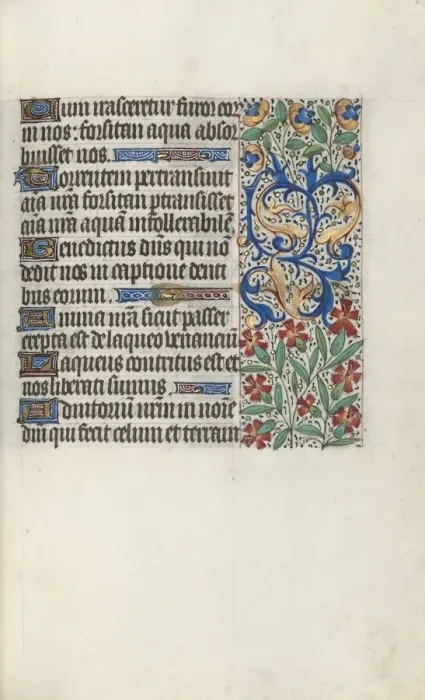 Cum irasceretur furor eor
in nos: forsitan aqua absor
buisset nos.
Torrentem pertransiuit
aĩa nr̃a forsitan ꝑtransisset
aĩa nr̃a aquã intollerabilẽ.
Benedictus dñs qui nõ
dedit nos in captione denti
bus eorum.
Anima nr̃a sicut passer
erepta est de laqueo venanciũ
Laqueus contritus est et
nos liberati sumus
Adiutoriũ nr̃m in noĩe
dñi qui fecit celum et terram